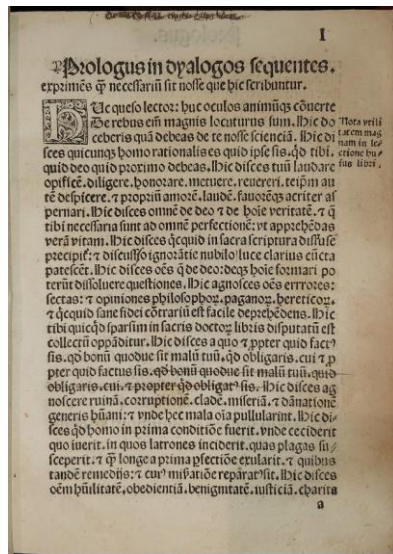 I
Prologus in dyalogos sequentes.
exprimēs ꝙ necessariū sit nosse que hic scribuntur.
HUc queso lector: huc oculos animūqꝫ cōuerte
De rebus em̄ magnis locuturus sum. Hic do
ceberis quā debeas de te nosse scienciā. Hic di
sces quicunqꝫ homo rationalis es quid ipse sis. qd̄ tibi.
quid deo quid proximo debeas. Hic disces tuū laudare
opificē. diligere. honorare. metuere. reuereri. teip̄m au
tē despicere. ⁊ propriū amorē. laudē. fauorēqꝫ acriter as
pernari. Hic disces omnē de deo ⁊ de hoīe veritatē. ⁊ q̄
tibi necessaria sunt ad omnē perfectionē: vt apprehēdas
verā vitam. Hic disces qc̄quid in sacra scriptura diffuse
precipit᷑: ⁊ discusso ignorātie nubilo luce clarius cūcta
patescēt. Hic disces oēs q̄ de deo: deqꝫ hoīe formari po
terūt dissoluere questiones. Hic agnosces oēs errores:
sectas: ⁊ opiniones philosophoꝝ. paganoꝝ. hereticoꝝ.
⁊ qc̄quid sane fidei cōtrariū est facile deprehēdens. Hic
tibi quicqd̄ sparsum in sacris doctoꝝ libris disputatū est
collectū oppādit᷑. Hic disces a quo ⁊ ꝓpter quid factꝰ
sis. qd̄ bonū quodue sit malū tuū. qd̄ obligaris. cui ⁊ ꝓp
ter quid factus sis. qd̄ bonū quodue sit malū tuū. quid
obligaris. cui. ⁊ propter qd̄ obligatꝰ sis. Hic disces ag
noscere ruinā. corruptionē. cladē. miseriā. ⁊ dānationē
generis hūani: ⁊ vnde hec mala oīa pullularint. Hic di-
sces qd̄ homo in prima conditiōe fuerit. vnde ceciderit
quo iuerit. in quos latrones inciderit. quas plagas su-
sceperit. ⁊ ꝙ longe a prima ꝑfectiōe exularit. ⁊ quibus
tandē remedijs: ⁊ cuiꝰ miẜatiōe reparatꝰ sit. Hic disces
oēm hūilitatē. obedientiā. benignitatē. iusticiā. charita
a
Nota vtili
tatem mag
nam in le-
ctione hu-
ius libri.